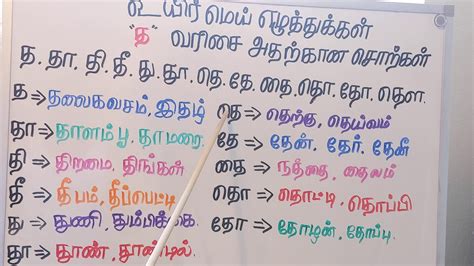 உயிர் மெய் எழுத்துக்கள்
"த" வரிசை அதற்கான சொற்கள்
த. தா. தி. தீ. து. தூ. தெ. தே. தை. தொ. தோ. தௌ.
த ⇒ தலைகவசம், இதழ்
தா ⇒ தாளம்பூ, தாமரை.
தி ⇒ திறமை, திங்கள்
தீ ⇒ தீபம், தீப்பெட்டி
து ⇒ துணி, தும்பிக்கை.
தூ ⇒ தூண், தூண்டில்.
தெ ⇒ தெற்கு, தெய்வம்
தே ⇒ தேன், தேர், தேனீ
தை ⇒ நத்தை, தைலம்
தொ ⇒ தொட்டி, தொப்பி
தோ ⇒ தோழன், தோப்பு.